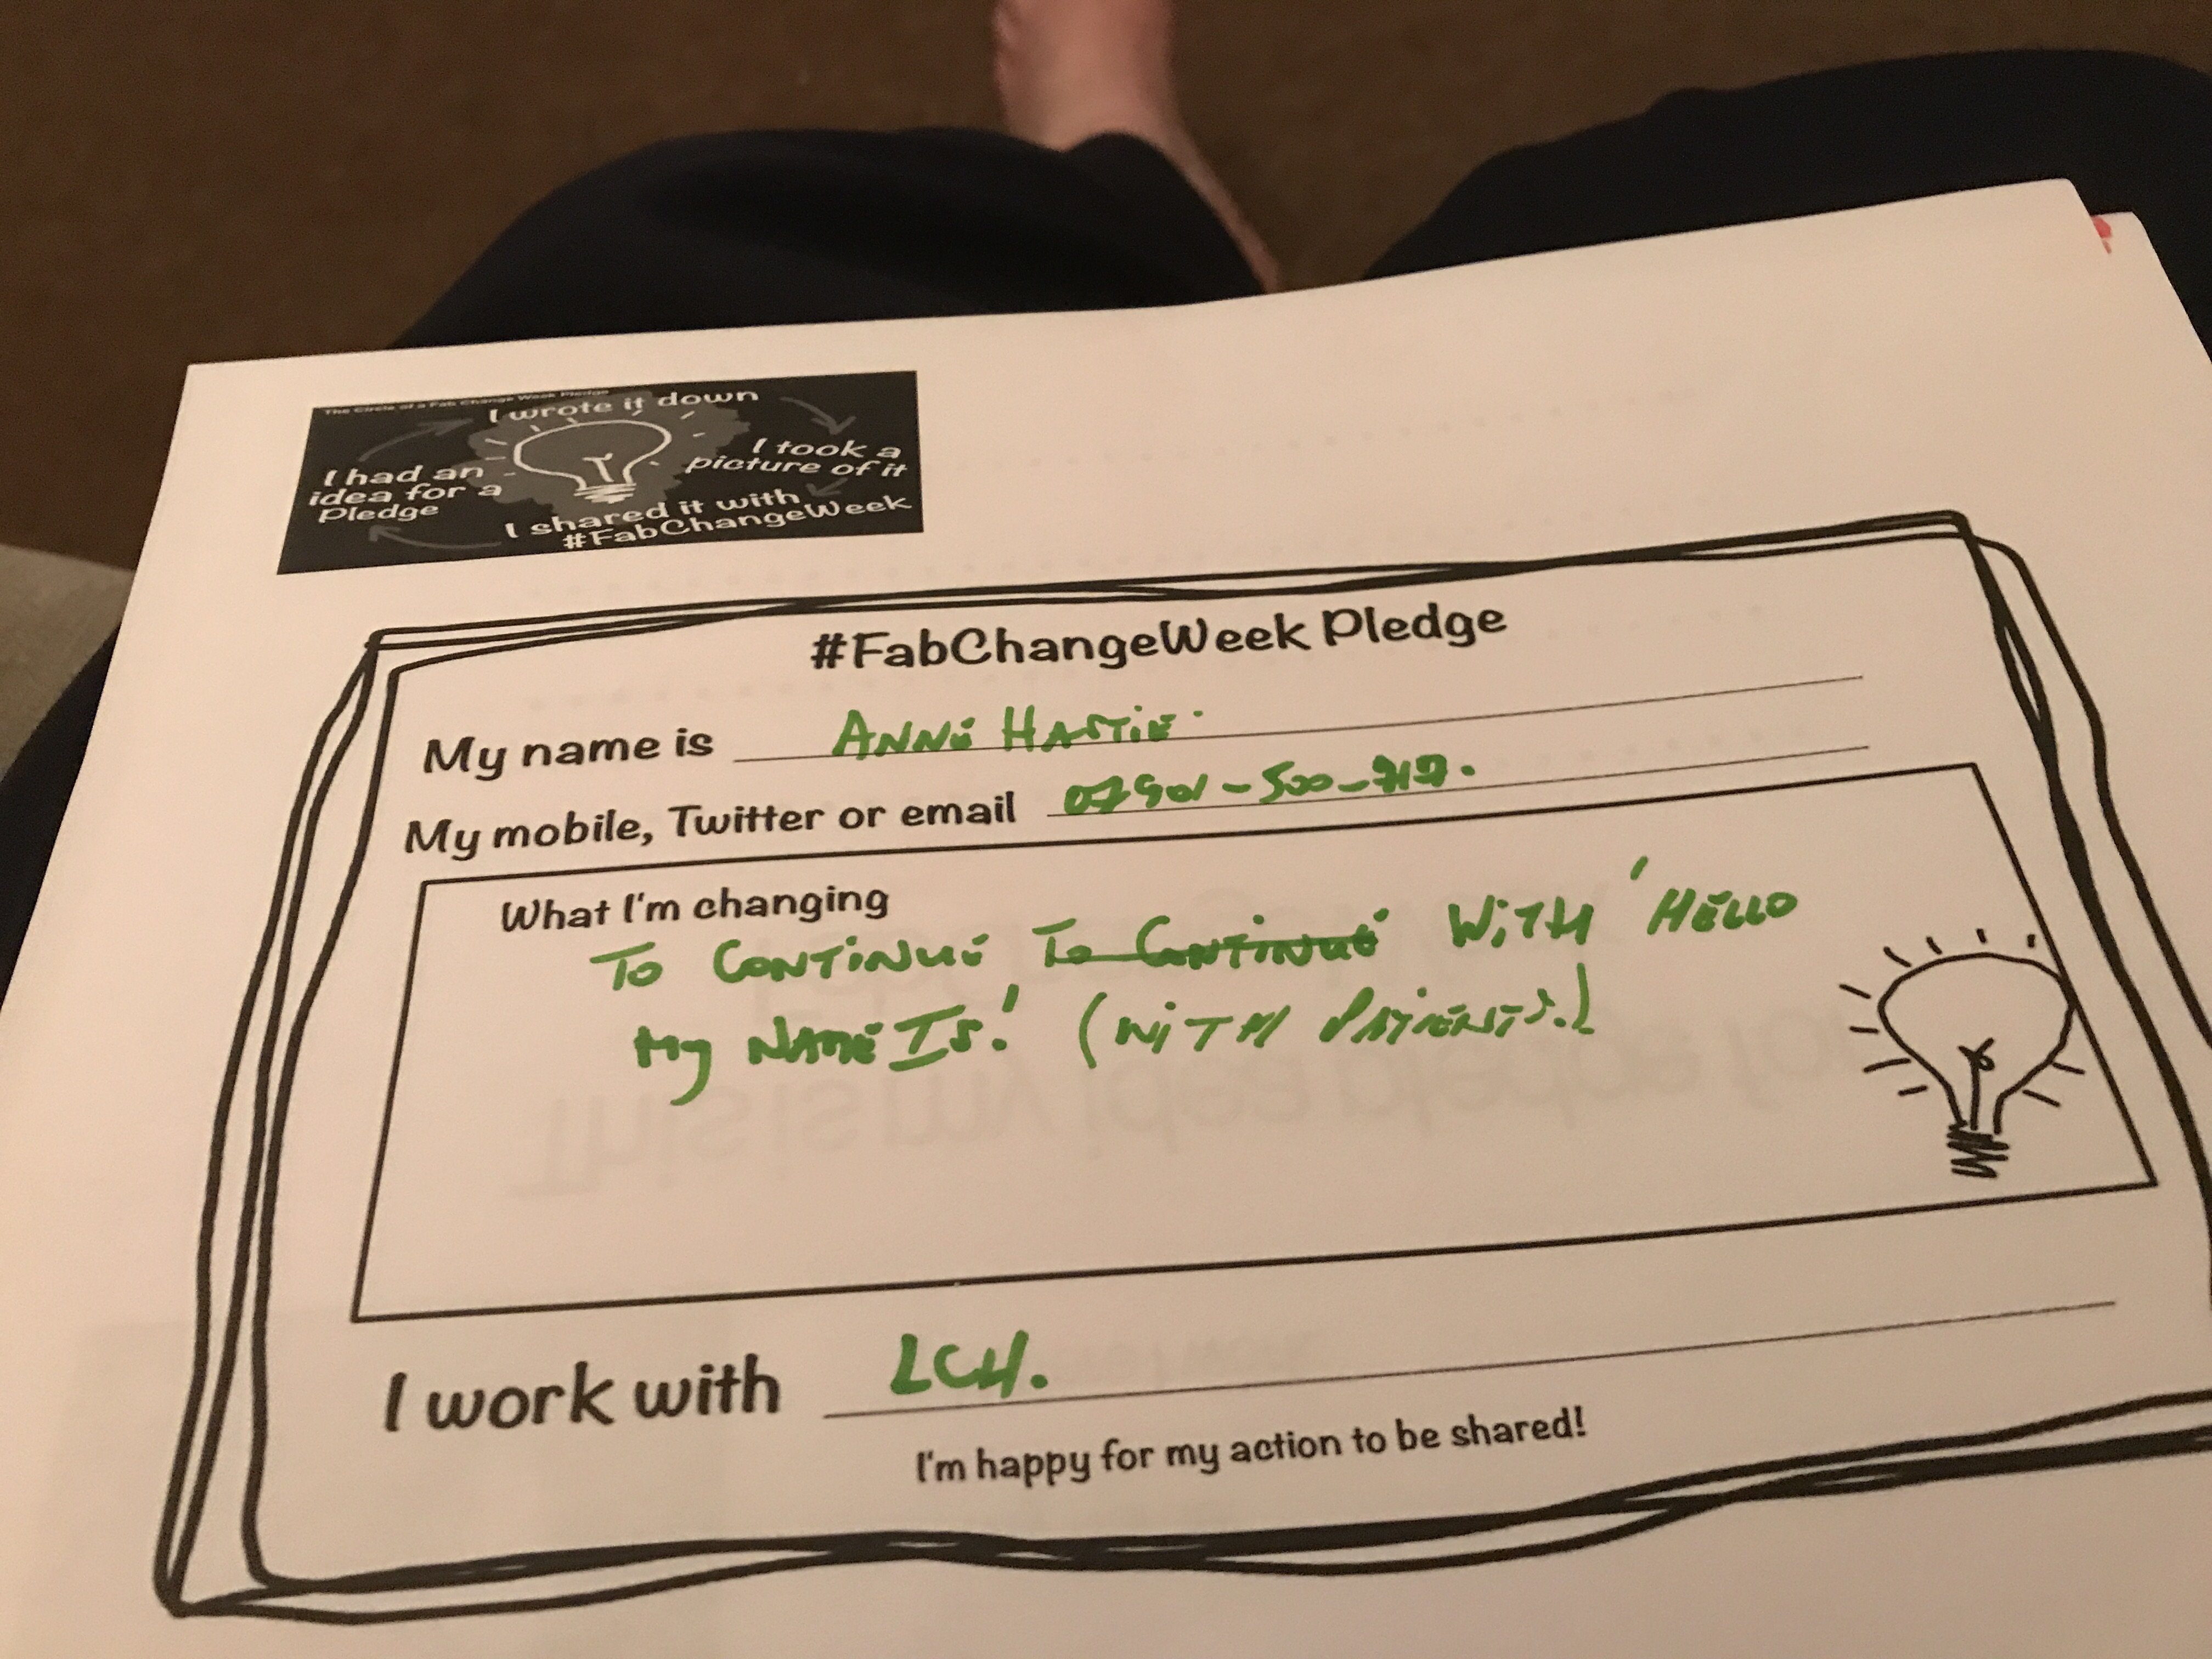 The Circle of a Fab Change Week Pledge
I wrote it down
I took a
picture of it
I shared it with
#FabChangeWeek
I had an
idea for a
Pledge
#FabChangeWeek Pledge
My name is ANNE HASTIE.
My mobile, Twitter or email
What I'm changing
TO CONTINUE TO CONTINUE WITH 'HELLO
MY NAME IS.' (WITH PATIENTS.)
I work with LCH.
I'm happy for my action to be shared!